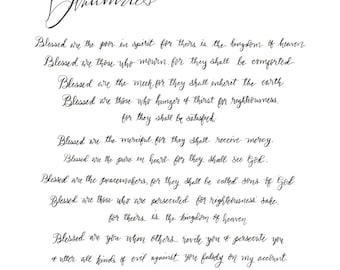 Beatitudes
Blessed are the poor in spirit for theirs is the kingdom of heaven
Blessed are those who mourn, for they shall be comforted
Blessed are the meek, for they shall inherit the earth
Blessed are those who hunger & thirst for righteousness,
for they shall be satisfied
Blessed are the merciful, for they shall receive mercy.
Blessed are the pure in heart for they shall see God.
Blessed are the peacemakers, for they shall be called sons of God
Blessed are those who are persecuted for righteousness sake,
for theirs is the kingdom of heaven
Blessed are you when others revile you & persecute you
& utter all kinds of evil against you falsely on my account.